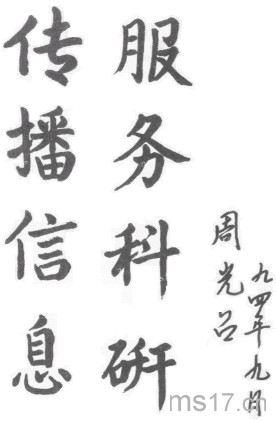 传播信息
服务科研
周光召
九四年九月
ms17.cn